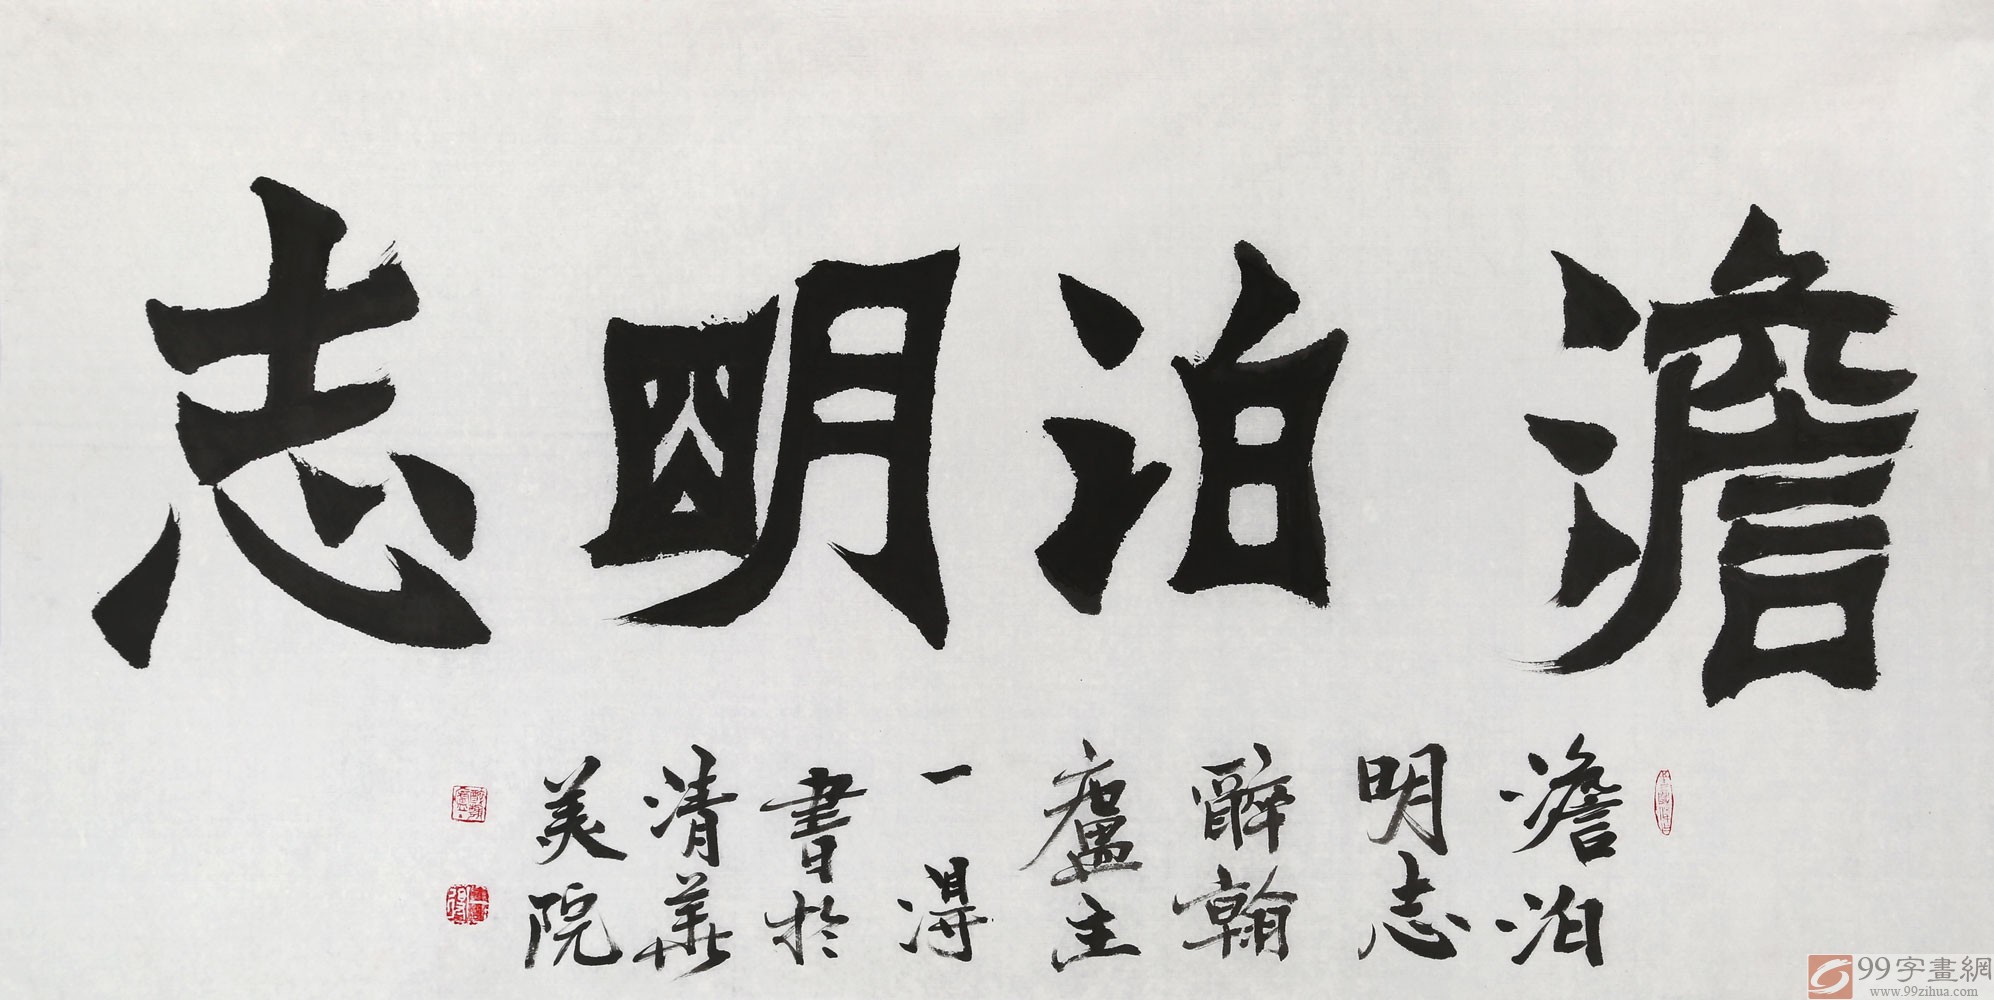 澹泊明志
澹泊
明志
醉翰
廬主
一得
書於
清華
美院
99字畫網
www.99zihua.com